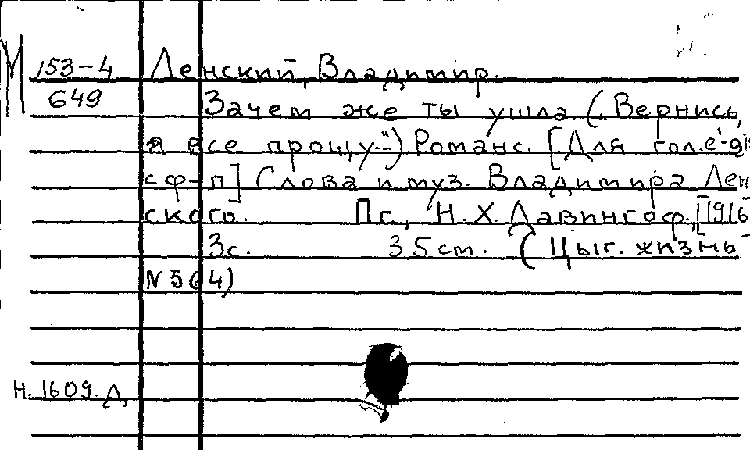 М 153-4 Ленский, Владимир.
649 Зачем же ты ушла (.Вернись,
я все прощу..") Романс. [Для гол. с
сф-п] Слова и муз. Владимира Лен
ского. Пг., Н. Х. Давингоф, [1916
3с. 35 cm. (Цыг. жизнь
N 564)
Н. 1609. Д,